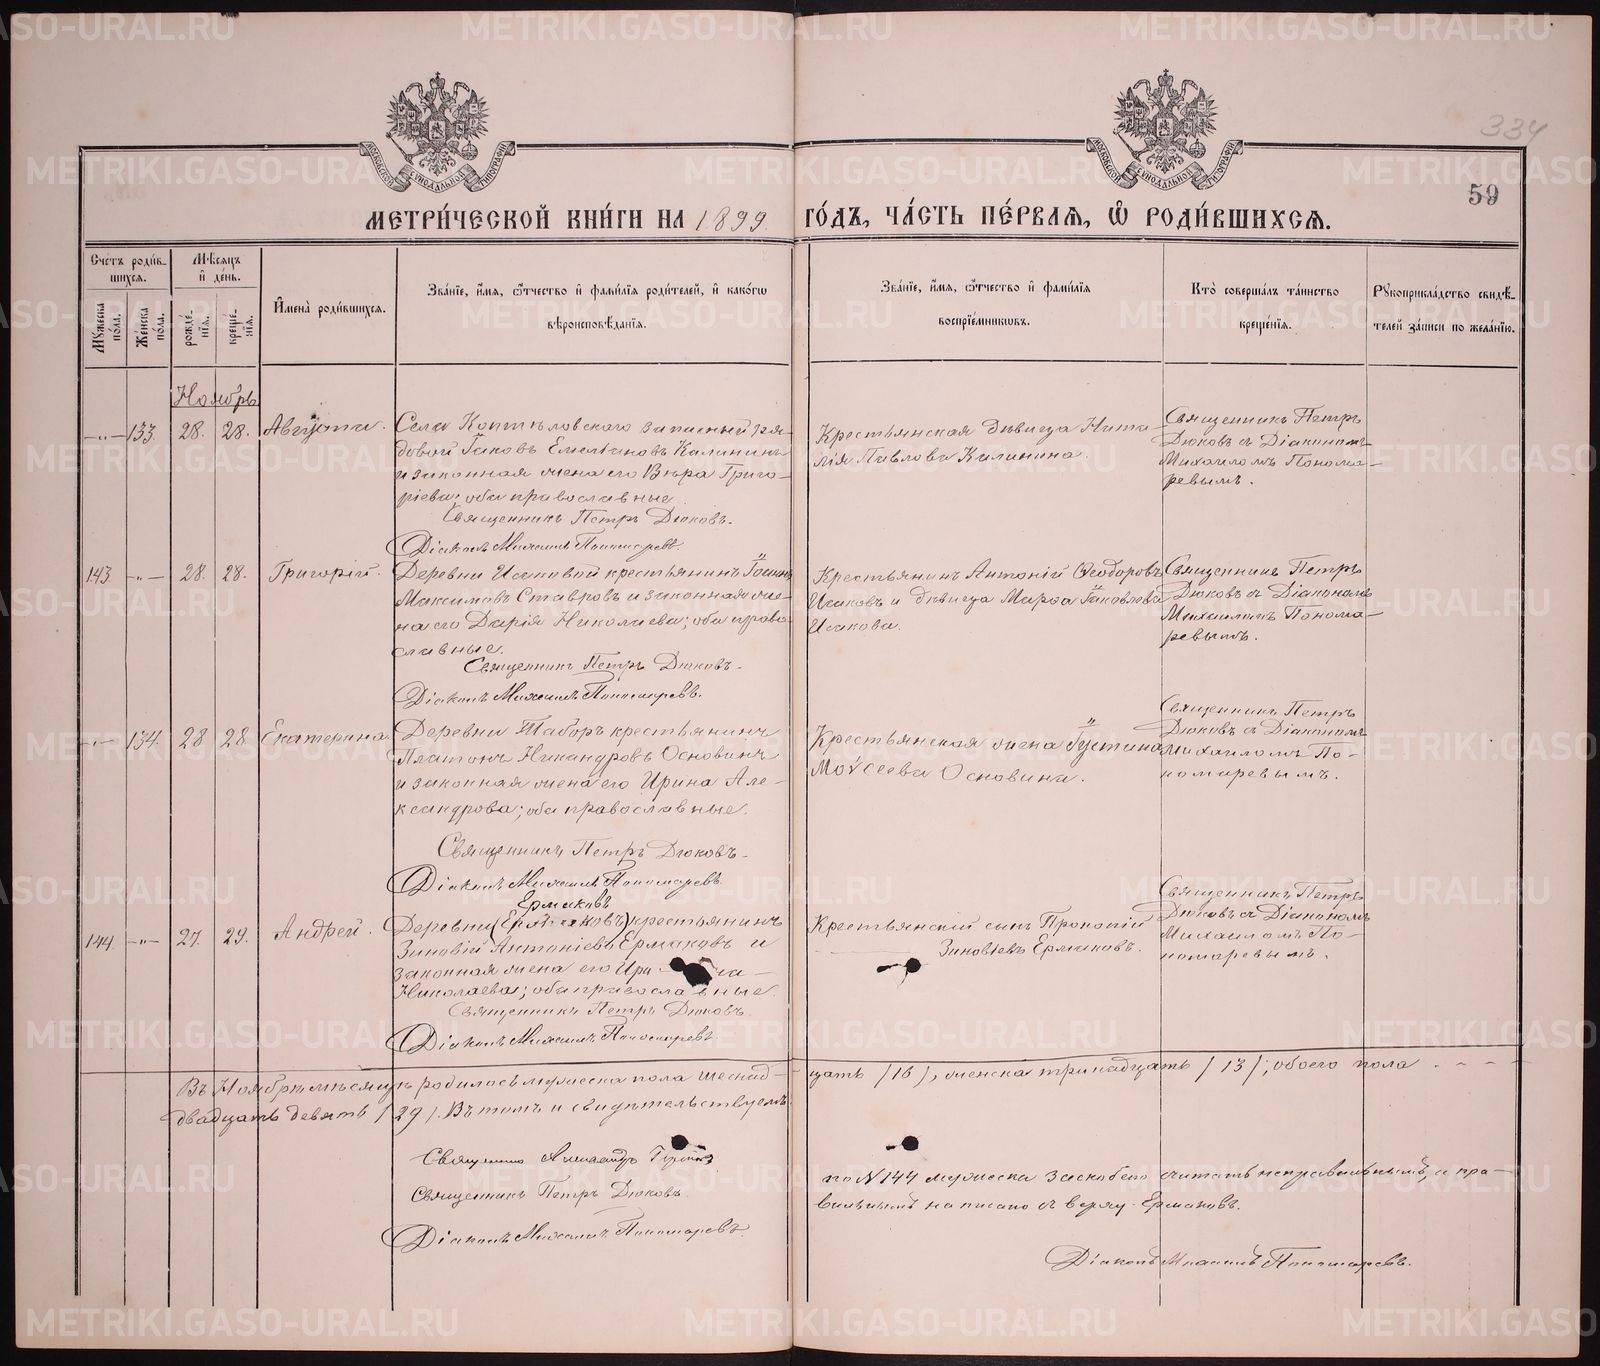 334
59
МЕТРИ́ЧЕСКОЙ КНИ́ГИ НА 1899 ГО́ДЪ, ЧА́СТЬ ПЕ́РВАЯ, Ѡ РОДИ́ВШИХСЯ.
Сче́тъ роди́вшихся.
Му́жеска по́ла.
Же́нска по́ла.
Мѣ́сяцъ и де́нь.
рожде́нїя.
креще́нїя.
Имена̀ роди́вшихся.
Зва́нїе, и́мя, ѻ҆́тчество и фами́лїя роди́телей, и како́гѡ
вѣроисповѣ́данїя.
Зва́нїе, и́мя, ѻ҆́тчество и фами́лїя
воспрїе́мниковъ.
Кто̀ соверша́лъ та́инство
креще́нїя.
Рꙋкоприкла́дство свидѣ́-
телей за́писи по жела́нїю.
Ноябрь
-"- 133. 28. 28. Августа.
Села Коптѣловскаго запасный ря-
довой Іаковъ Емельяновъ Калининъ
и законная жена его Вѣра Григо-
ріева; оба православные.
Священникъ Петръ Дюковъ.
Діаконъ Михаилъ Пономаревъ.
Крестьянская дѣвица Ната-
лія Павлова Калинина.
Священникъ Петръ
Дюковъ съ Діакономъ
Михаиломъ Понома-
ревымъ.
143. -"- 28. 28. Григорій.
Деревни Исаковой крестьянинъ Іоаннъ
Максимовъ Ставровъ и законная же-
на его Дарія Николаева; оба право-
славные.
Священникъ Петръ Дюковъ.
Діаконъ Михаилъ Пономаревъ.
Крестьянинъ Антоній Ѳеодоровъ
Исаковъ и дѣвица Марѳа Іаковлева
Исакова.
Священникъ Петръ
Дюковъ съ Діакономъ
Михаиломъ Понома-
ревымъ.
-"- 134. 28 28 Екатерина
Деревни Таборъ крестьянинъ
Платонъ Никандровъ Основинъ
и законная жена его Ирина Але-
ксандрова; оба православные.
Священникъ Петръ Дюковъ.
Діаконъ Михаилъ Пономаревъ.
Крестьянская жена Іустина
Моѵсеева Основина.
Священникъ Петръ
Дюковъ съ Діакономъ
Михаиломъ По-
номаревымъ.
144. -"- 27. 29. Андрей.
Ермаковъ
Деревни крестьянинъ
Зиновій Антоніевъ Ермаковъ и
законная жена его
Николаева; оба православные.
Священникъ Петръ Дюковъ.
Діаконъ Михаилъ Пономаревъ.
Крестьянскій сынъ Прокопій
Зиновіевъ Ермаковъ.
Священникъ Петръ
Дюковъ съ Діакономъ
Михаиломъ По-
номаревымъ.
Въ Ноябрѣ мѣсяцѣ родилось мужеска пола шестнад-цать /16/, женска тринадцать /13/; обоего пола
двадцать девять /29/. Въ томъ и свидѣтельствуемъ.
Священникъ Александръ
Священникъ Петръ Дюковъ.
Діаконъ Михаилъ Пономаревъ.
по № 144 мужеска за скобки считать неправильнымъ, а пра-
вильнымъ написано съ верху Ермаковъ.
Діаконъ Михаилъ Пономаревъ.
METRIKI.GASO-URAL.RU